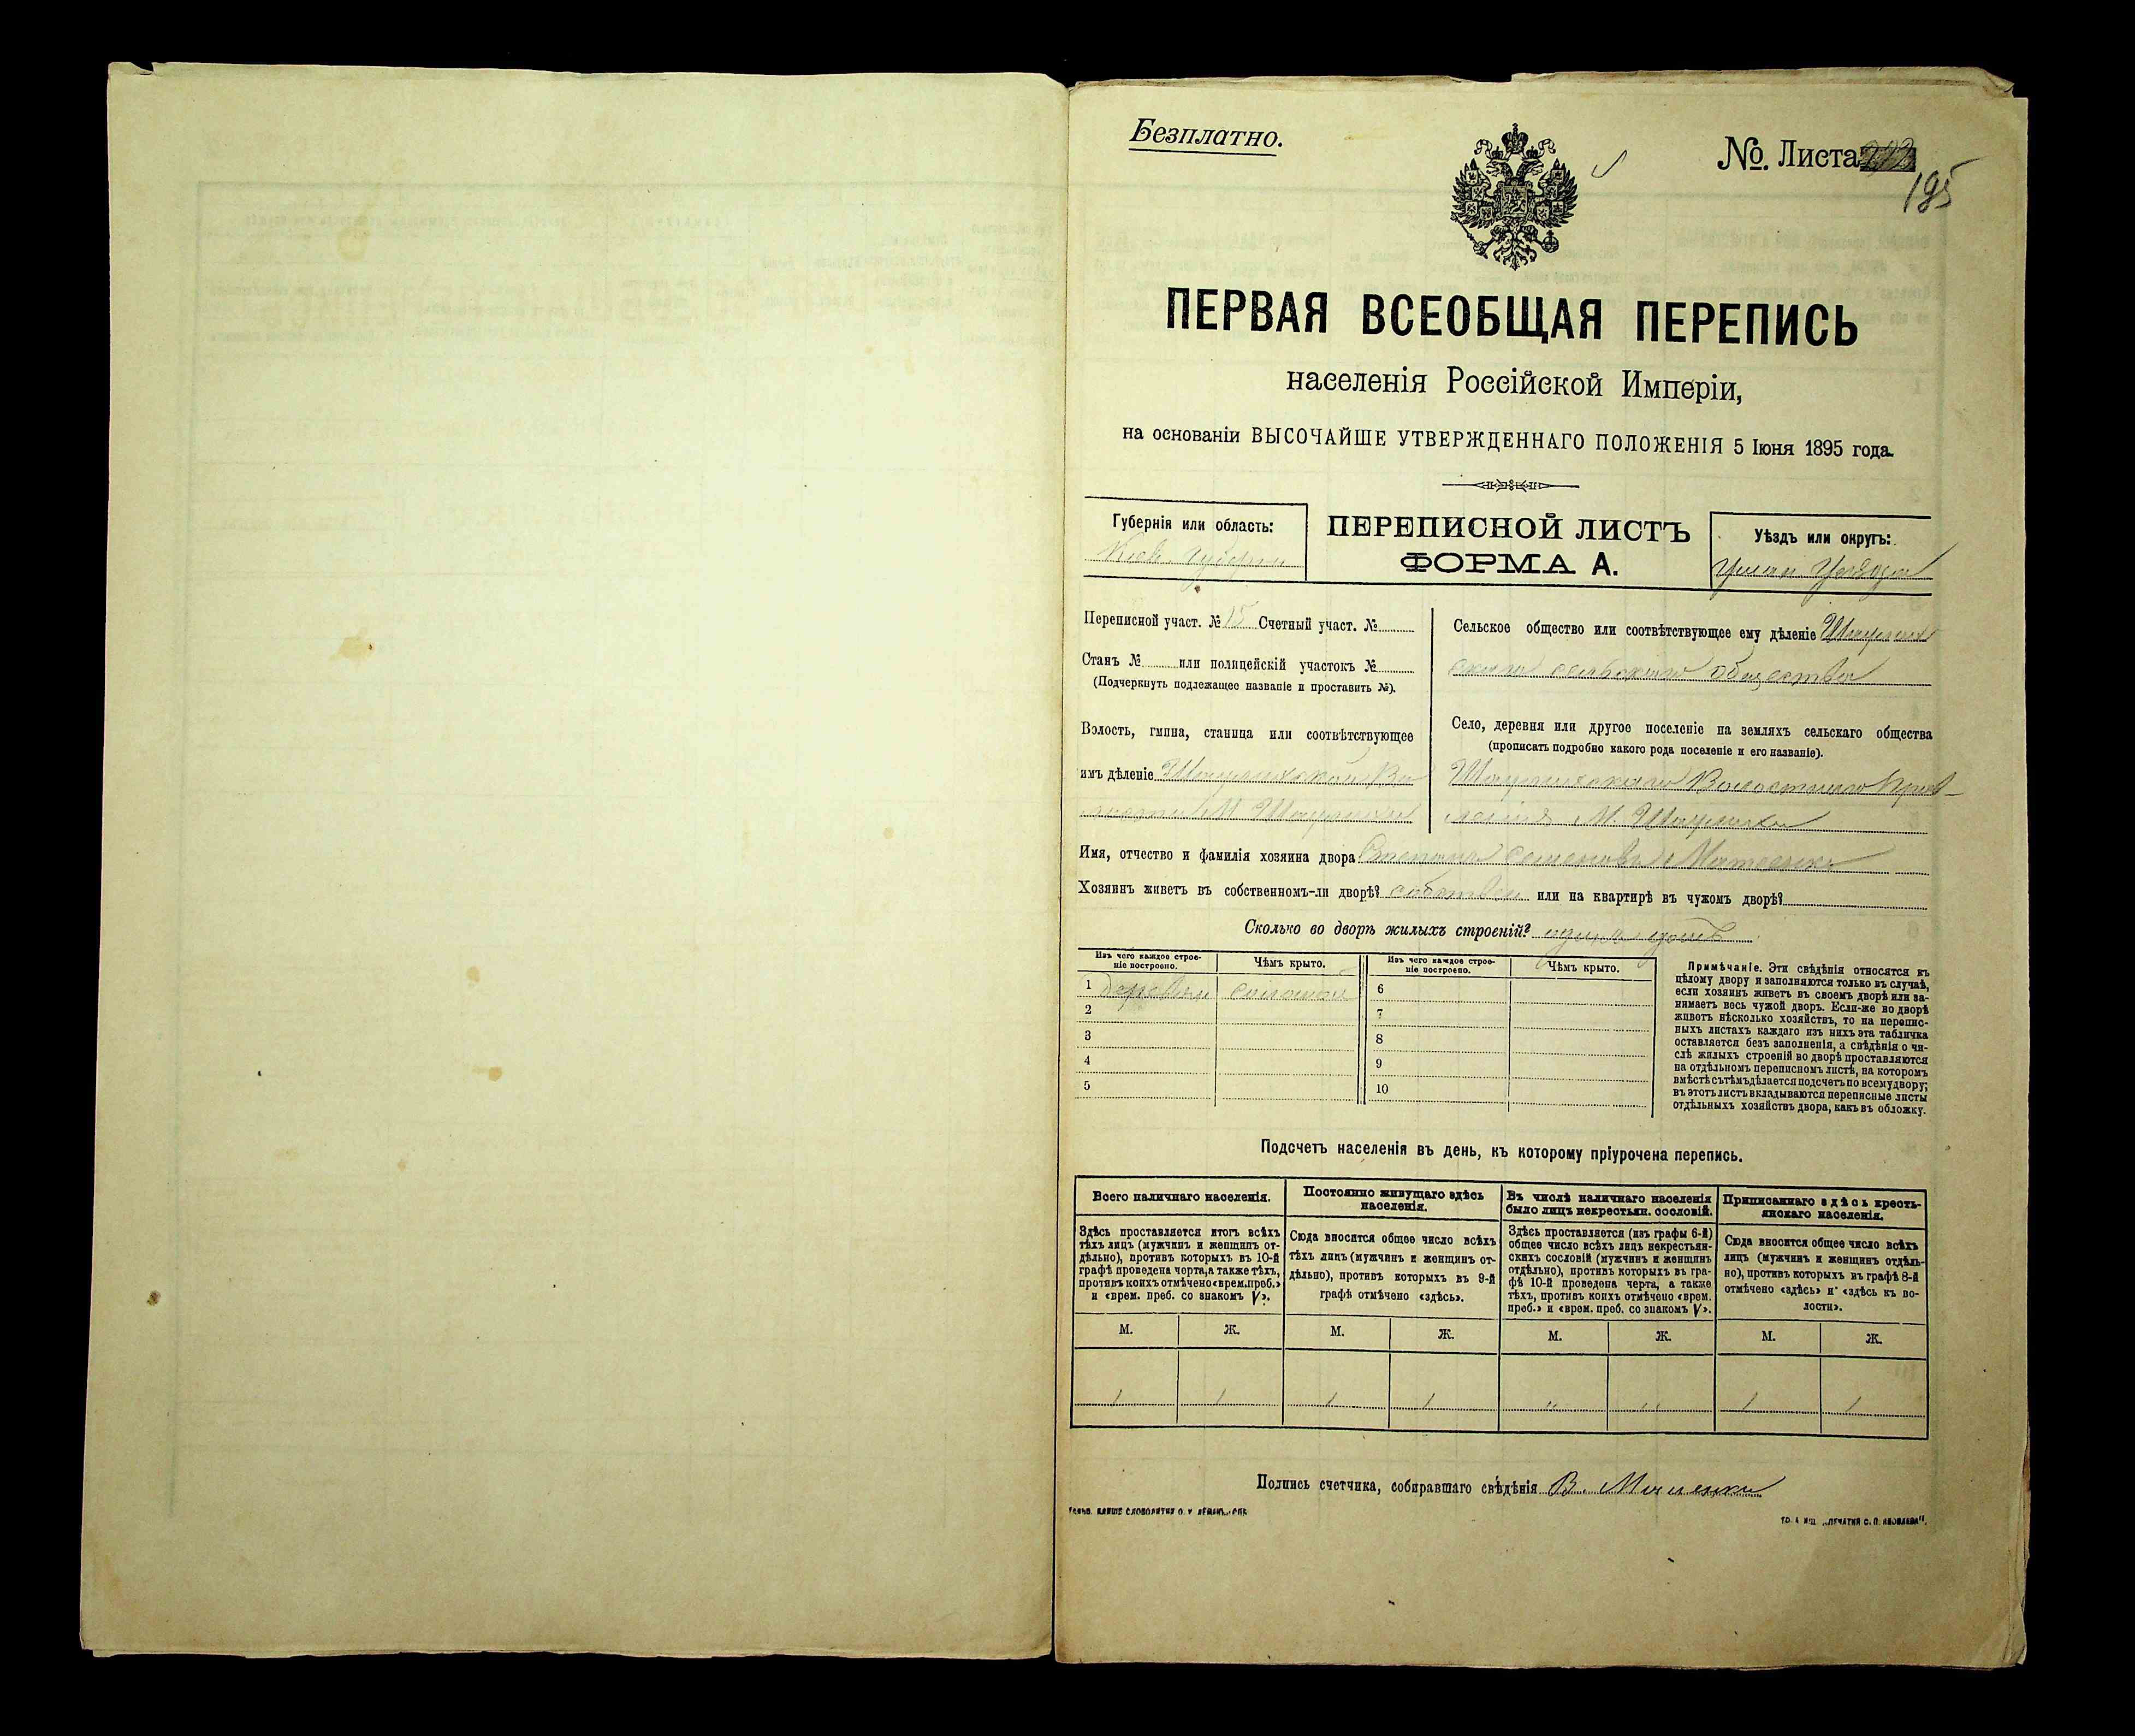 Безплатно.
№. Листа
195
ПЕРВАЯ ВСЕОБЩАЯ ПЕРЕПИСЬ
населенія Россійской Имперіи,
на основаніи ВЫСОЧАЙШЕ УТВЕРЖДЕННАГО ПОЛОЖЕНІЯ 5 Іюня 1895 года.
Губернія или область:
Кіев. Губерніи
ПЕРЕПИСНОЙ ЛИСТЪ
ФОРМА А.
Уѣздъ или округъ:
Уман. Уѣзда
Переписной участ. № 15 Счетный участ. №
Станъ № или полицейскій участокъ №
(Подчеркнуть подлежащее названіе и проставить №).
Волость, гмина, станица или соотвѣтствующее
имъ дѣленіе Шаулихской Во
лости М. Шаулихи
Сельское общество или соотвѣтствующее ему дѣленіе Шаулих
скаго сельскаго общества
Село, деревня или другое поселеніе на земляхъ сельскаго общества
(прописать подробно какого рода поселеніе и его названіе).
Шаулихскаго Волостнаго Прав-
ленія М. Шаулиха
Имя, отчество и фамилія хозяина двора Степана Семенова
Хозяинъ живетъ въ собственномъ-ли дворѣ? собствен или на квартирѣ въ чужомъ дворѣ?
Сколько во дворѣ жилыхъ строеній? один домъ
Изъ чего каждое строе-
ніе построено.
Чѣмъ крыто.
Изъ чего каждое строе-
ніе построено.
Чѣмъ крыто.
1 деревян соломой
2
3
4
5
6
7
8
9
10
Примѣчаніе. Эти свѣдѣнія относятся къ
цѣлому двору и заполняются только въ случаѣ,
если хозяинъ живетъ въ своемъ дворѣ или за-
нимаетъ весь чужой дворъ. Если-же во дворѣ
живетъ нѣсколько хозяйствъ, то на перепис-
ныхъ листахъ каждаго изъ нихъ эта табличка
оставляется безъ заполненія, а свѣдѣнія о чи-
слѣ жилыхъ строеній во дворѣ проставляются
на отдѣльномъ переписномъ листѣ, на которомъ
вмѣстѣ съ тѣмъ дѣлается подсчетъ по всему двору;
въ этотъ листъ вкладываются переписные листы
отдѣльныхъ хозяйствъ двора, какъ въ обложку.
Подсчетъ населенія въ день, къ которому пріурочена перепись.
Всего наличнаго населенія.
Здѣсь проставляется итогъ всѣхъ
тѣхъ лицъ (мужчинъ и женщинъ от-
дѣльно), противъ которыхъ въ 10-й
графѣ проведена черта, а также тѣхъ,
противъ коихъ отмѣчено «врем. преб.»
и «врем. преб. со знакомъ V».
Постоянно живущаго здѣсь
населенія.
Сюда вносится общее число всѣхъ
тѣхъ лицъ (мужчинъ и женщинъ от-
дѣльно), противъ которыхъ въ 9-й
графѣ отмѣчено «здѣсь».
Въ числѣ наличнаго населенія
было лицъ некрестьян. сословій.
Здѣсь проставляется (изъ графы 6-й)
общее число всѣхъ лицъ некрестьян-
скихъ сословій (мужчинъ и женщинъ
отдѣльно), противъ которыхъ въ гра-
фѣ 10-й проведена черта, а также
тѣхъ, противъ коихъ отмѣчено «врем.
преб.» и «врем. преб. со знакомъ V».
Приписаннаго здѣсь кресть-
янскаго населенія.
Сюда вносится общее число всѣхъ
лицъ (мужчинъ и женщинъ отдѣль-
но), противъ которыхъ въ графѣ 8-й
отмѣчено «здѣсь» и «здѣсь къ во-
лости».
М. Ж. М. Ж. М. Ж. М. Ж.
1 1 1 1 " " 1 1
Подпись счетчика, собиравшаго свѣдѣнія В.